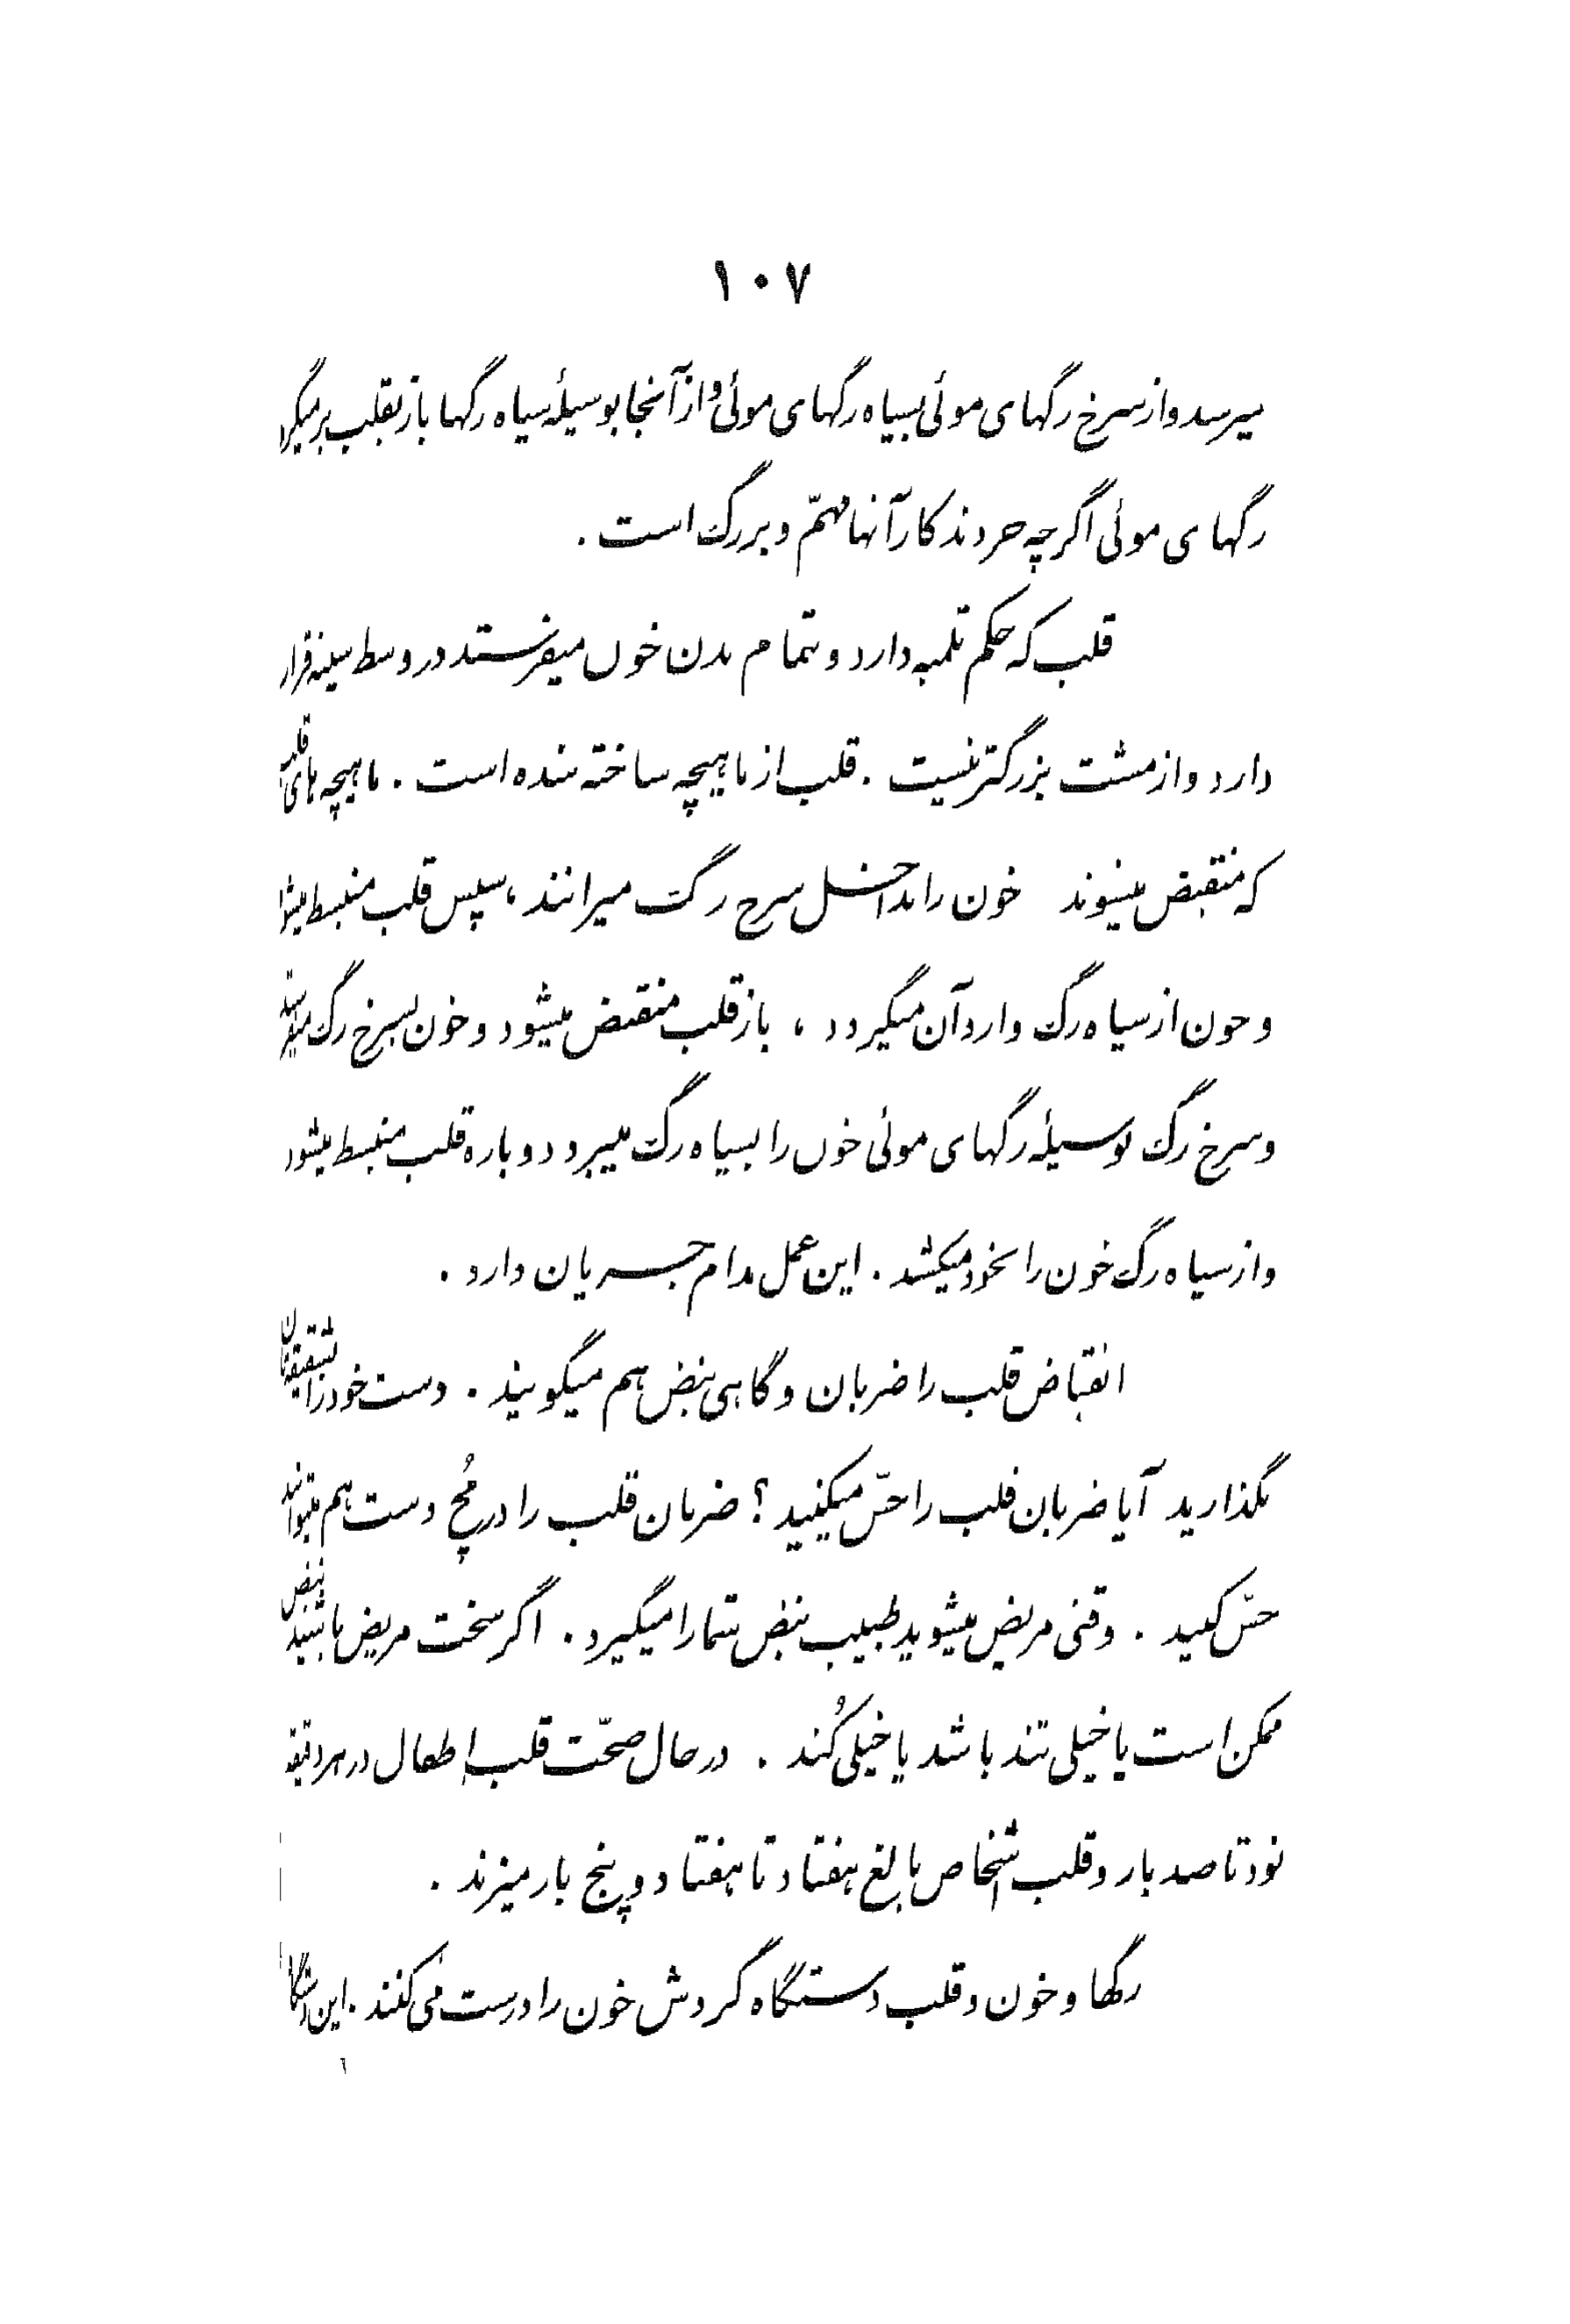 ۱۰۷
میرسد و از سرخ رگهای موئی بسیاه رگهای موئی و از آنجا بوسیلهٔ سیاه رگها باز بقلب برمیگر
رگهای موئی اگرچه خردند کار آنها مهمّ و بزرگ است .
قلب که حکم تلمبه دارد و بتمام بدن خون میفرستد در وسط سینه قرار
دارد و از مشت بزرگتر نیست . قلب از ماهیچه ساخته شده است . ماهیچه های قلب
که منقبض میشوند خون را بداخل سرخ رگ میرانند ، سپس قلب منبسط میشو
و خون از سیاه رگ وارد آن میگردد ، باز قلب منقبض میشود و خون بسرخ رگ میفرستد
و سرخ رگ بوسیلهٔ رگهای موئی خون را بسیاه رگ میبرد دوباره قلب منبسط میشود
و از سیاه رگ خون را بخود میکشد . این عمل مدام جریان دارد .
انقباض قلب را ضربان و گاهی نبض هم میگویند . دست خود را بشقیقه‌تان
بگذارید آیا ضربان قلب را حسّ میکنید ؟ ضربان قلب را در مُچ دست هم میتوانید
حسّ کنید . وقتی مریض میشوید طبیب نبض شما را میگیرد . اگر سخت مریض باشید نبض
ممکن است یا خیلی تند باشد یا خیلی کُند . در حال صحّت قلب اطفال در هر دقیقه
نود تا صد بار و قلب اشخاص بالغ هفتاد تا هفتاد و پنج بار میزند .
رگها و خون و قلب دستگاه گردش خون را درست می کنند . این دستگا